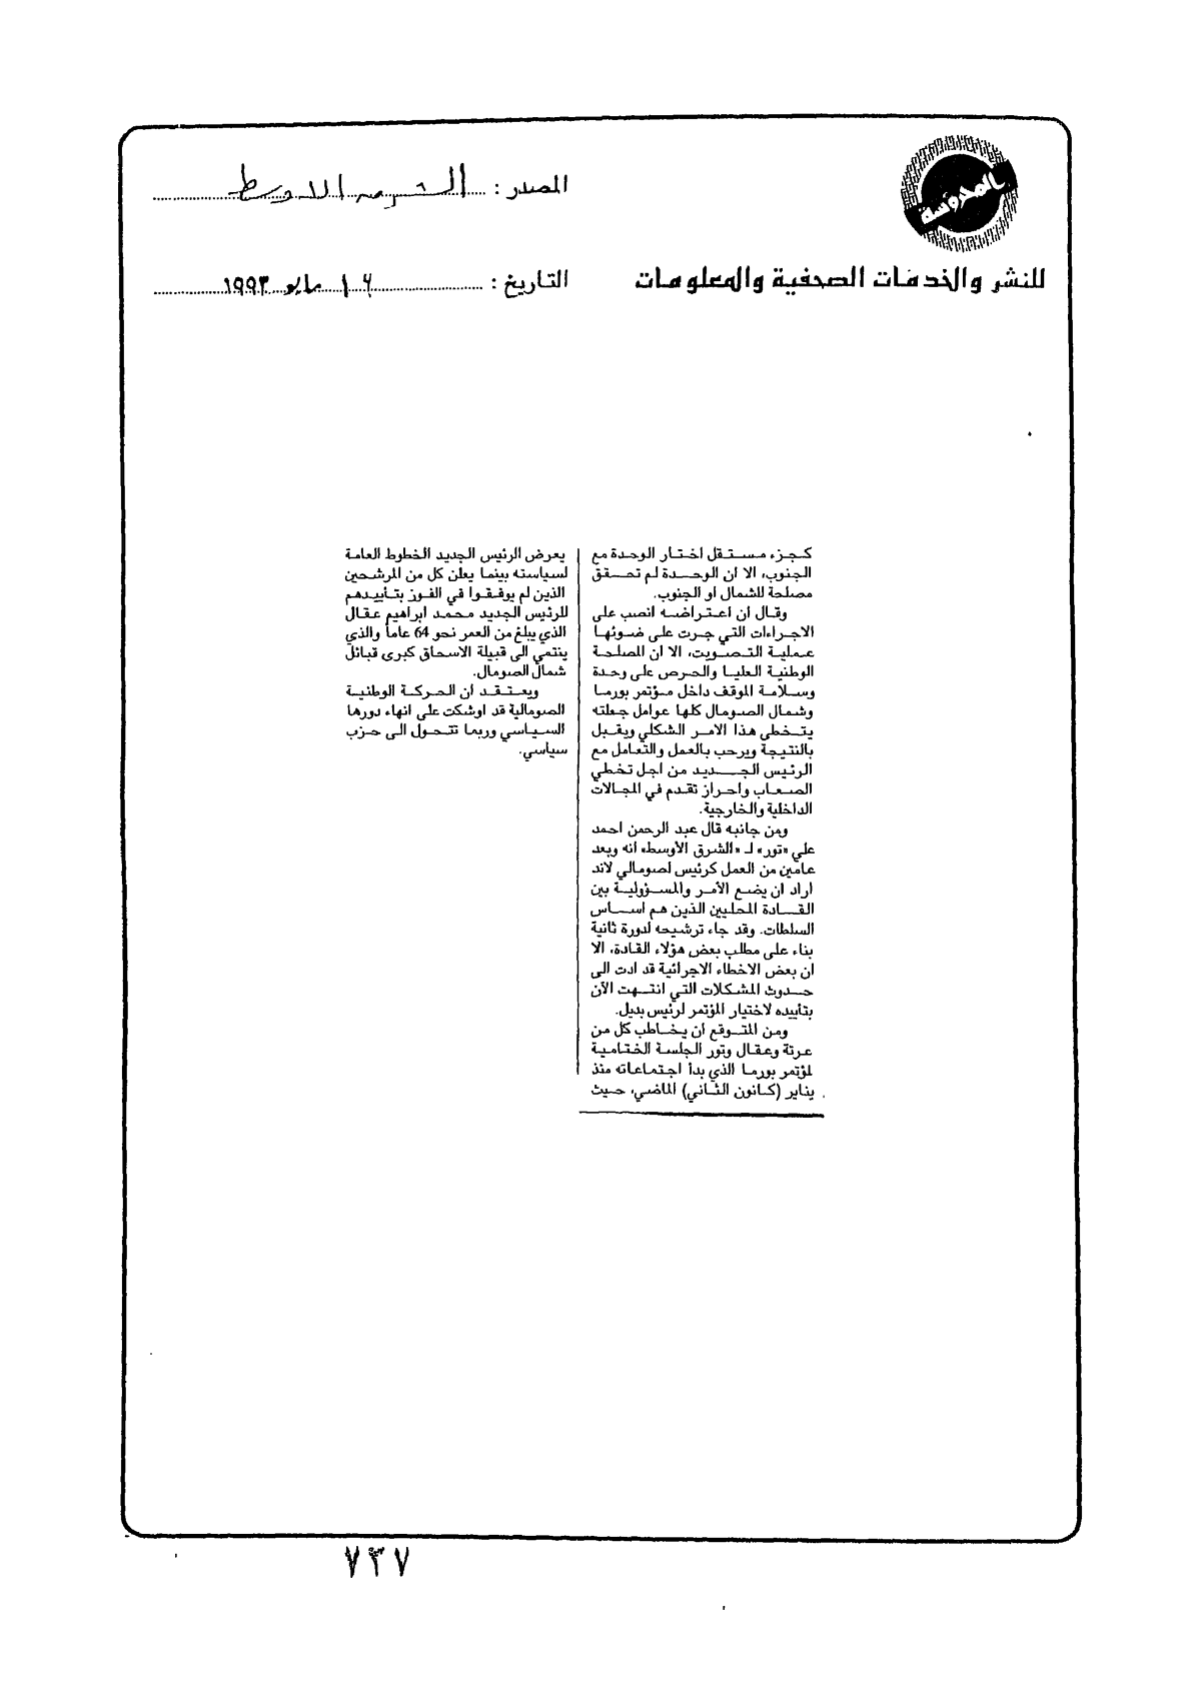 المدروسة
للنشر والخدمات الصحفية والمعلومات
المصدر : الشرق الاوسط
التاريخ : ١٦ مايو ١٩٩٣
كجزء مستقل اختار الوحدة مع
الجنوب، الا ان الوحدة لم تحقق
مصلحة للشمال او الجنوب.
وقال ان اعتراضه انصب على
الاجراءات التي جرت على ضوئها
عملية التصويت، الا ان المصلحة
الوطنية العليا والحرص على وحدة
وسلامة الموقف داخل مؤتمر بورما
وشمال الصومال كلها عوامل جعلته
يتخطى هذا الامر الشكلي ويقبل
بالنتيجة ويرحب بالعمل والتعامل مع
الرئيس الجديد من اجل تخطي
الصعاب واحراز تقدم في المجالات
الداخلية والخارجية.
ومن جانبه قال عبد الرحمن احمد
علي «تور» لـ «الشرق الأوسط» انه وبعد
عامين من العمل كرئيس لصومالي لاند
اراد ان يضع الأمر والمسؤولية بين
القادة المحليين الذين هم اساس
السلطات. وقد جاء ترشيحه لدورة ثانية
بناء على مطلب بعض هؤلاء القادة، الا
ان بعض الاخطاء الاجرائية قد ادت الى
حدوث المشكلات التي انتهت الآن
بتأييده لاختيار المؤتمر لرئيس بديل.
ومن المتوقع ان يخاطب كل من
عرتة وعقال وتور الجلسة الختامية
لمؤتمر بورما الذي بدأ اجتماعاته منذ
يناير (كانون الثاني) الماضي، حيث
يعرض الرئيس الجديد الخطوط العامة
لسياسته بينما يعلن كل من المرشحين
الذين لم يوفقوا في الفوز بتأييدهم
للرئيس الجديد محمد ابراهيم عقال
الذي يبلغ من العمر نحو 64 عاماً والذي
ينتمي الى قبيلة الاسحاق كبرى قبائل
شمال الصومال.
ويعتقد ان الحركة الوطنية
الصومالية قد اوشكت على انهاء دورها
السياسي وربما تتحول الى حزب
سياسي.
٧٣٧